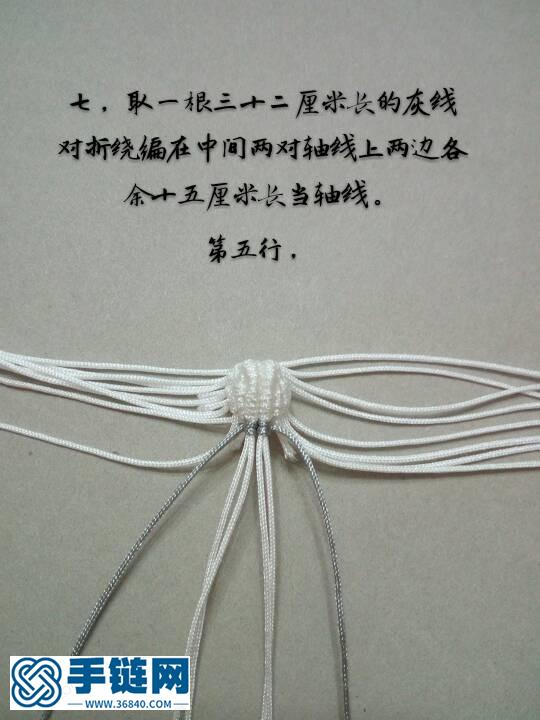 七，取一根三十二厘米长的灰线
对折绕编在中间两对轴线上两边各
余十五厘米长当轴线。
第五行，
手链网
WWW.36840.COM